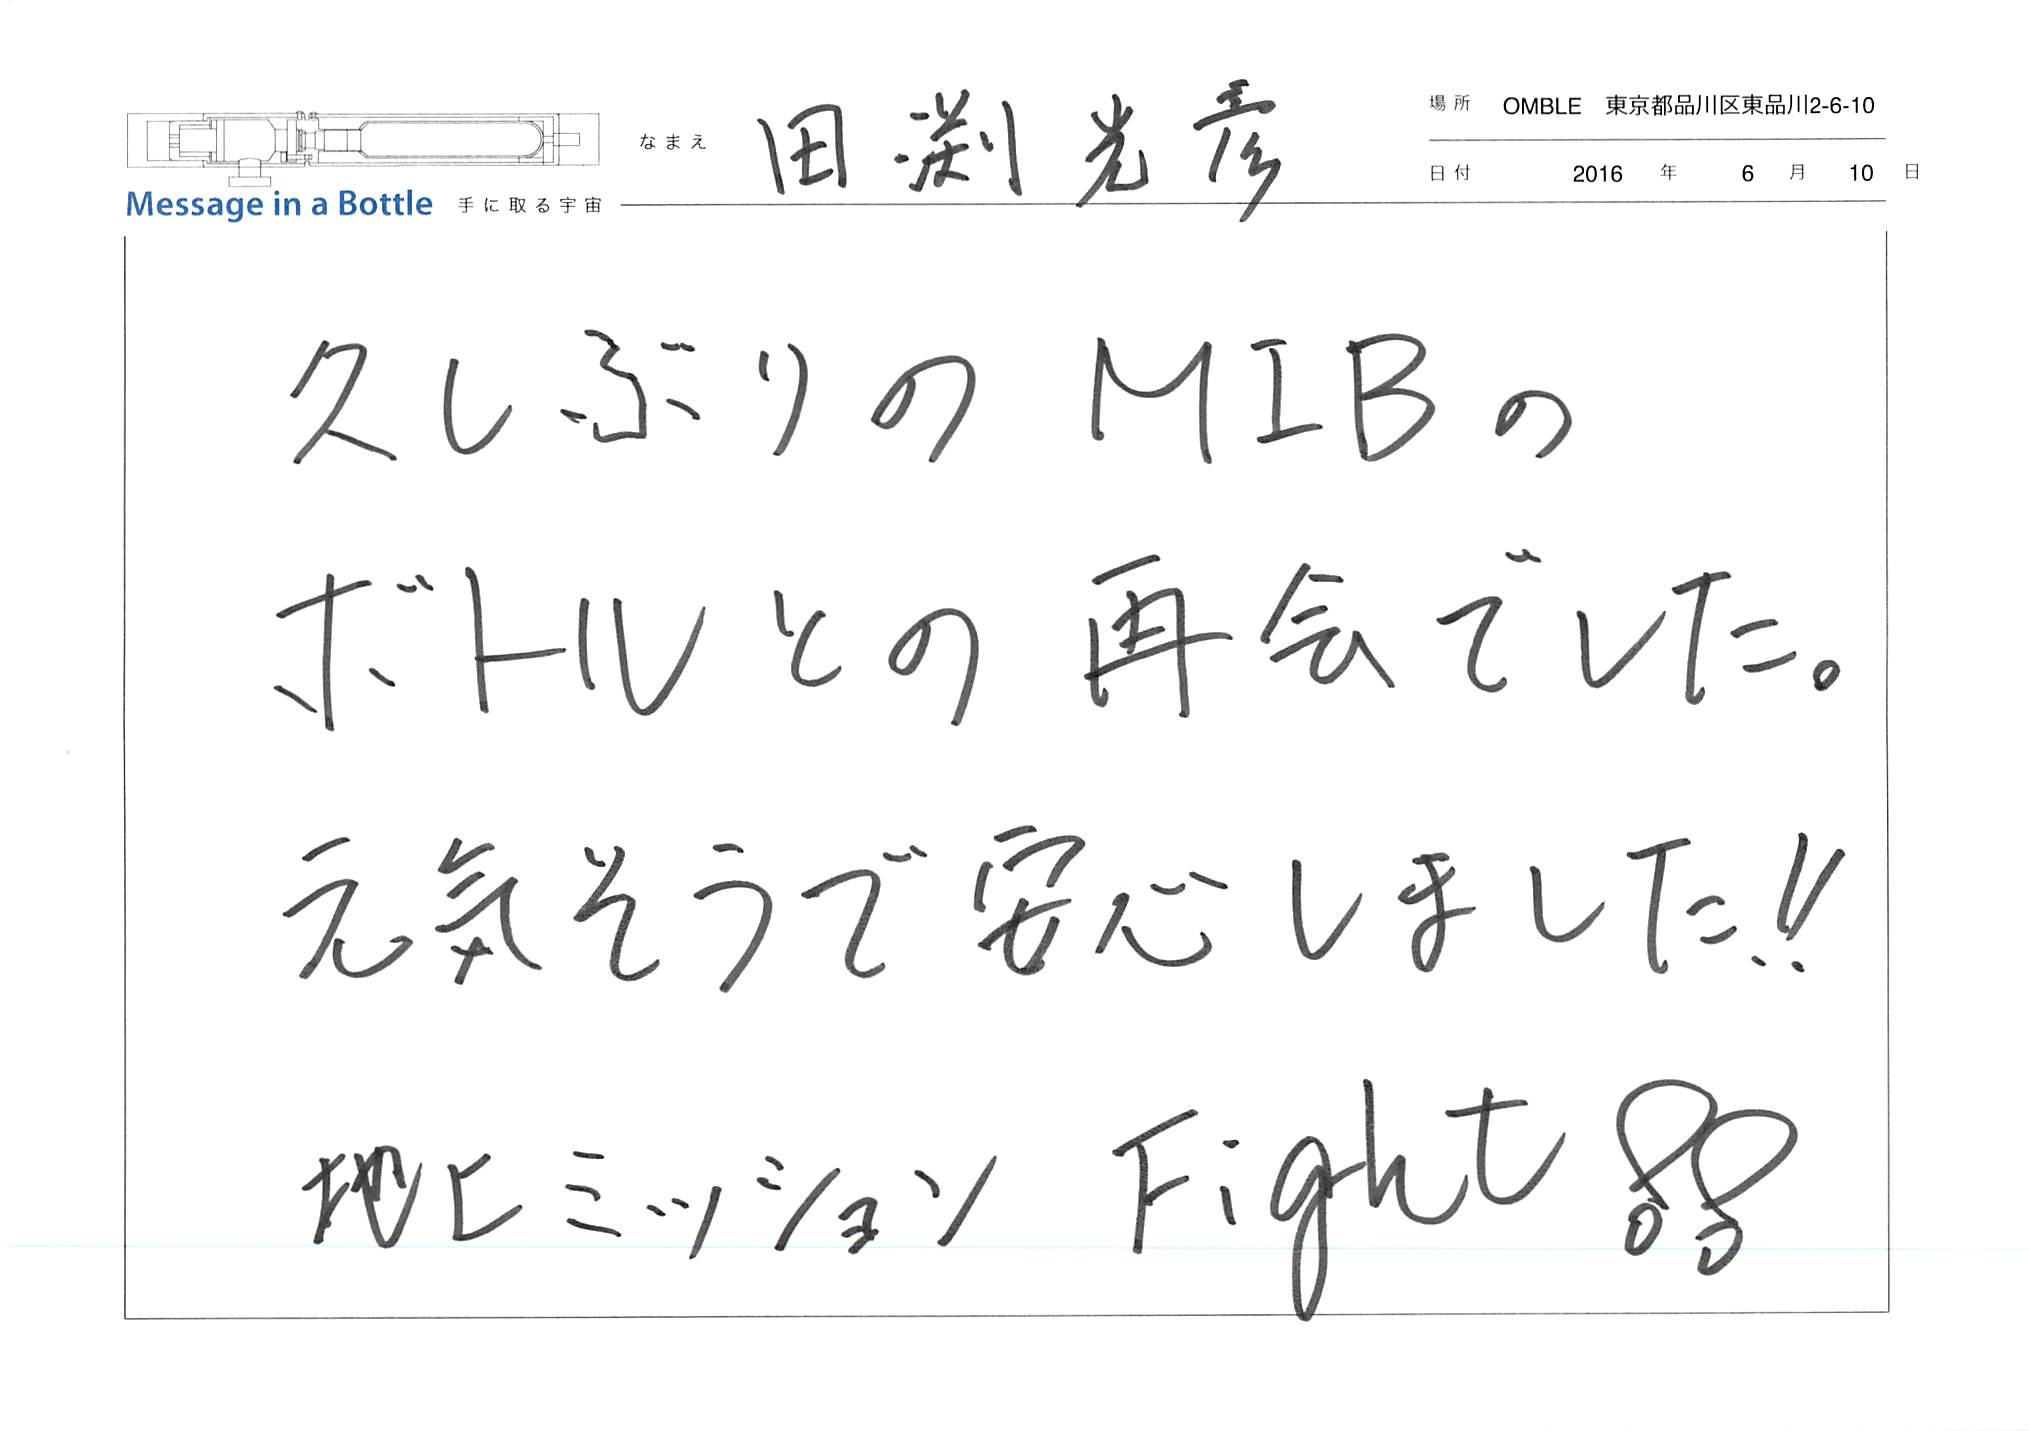 なまえ 田渕光彦
場所 OMBLE 東京都品川区東品川2-6-10
日付 2016 年 6 月 10 日
Message in a Bottle 手に取る宇宙
久しぶりの MIBの
ボトルとの再会でした。
元気そうで安心しました!!
地上ミッション Fight!!